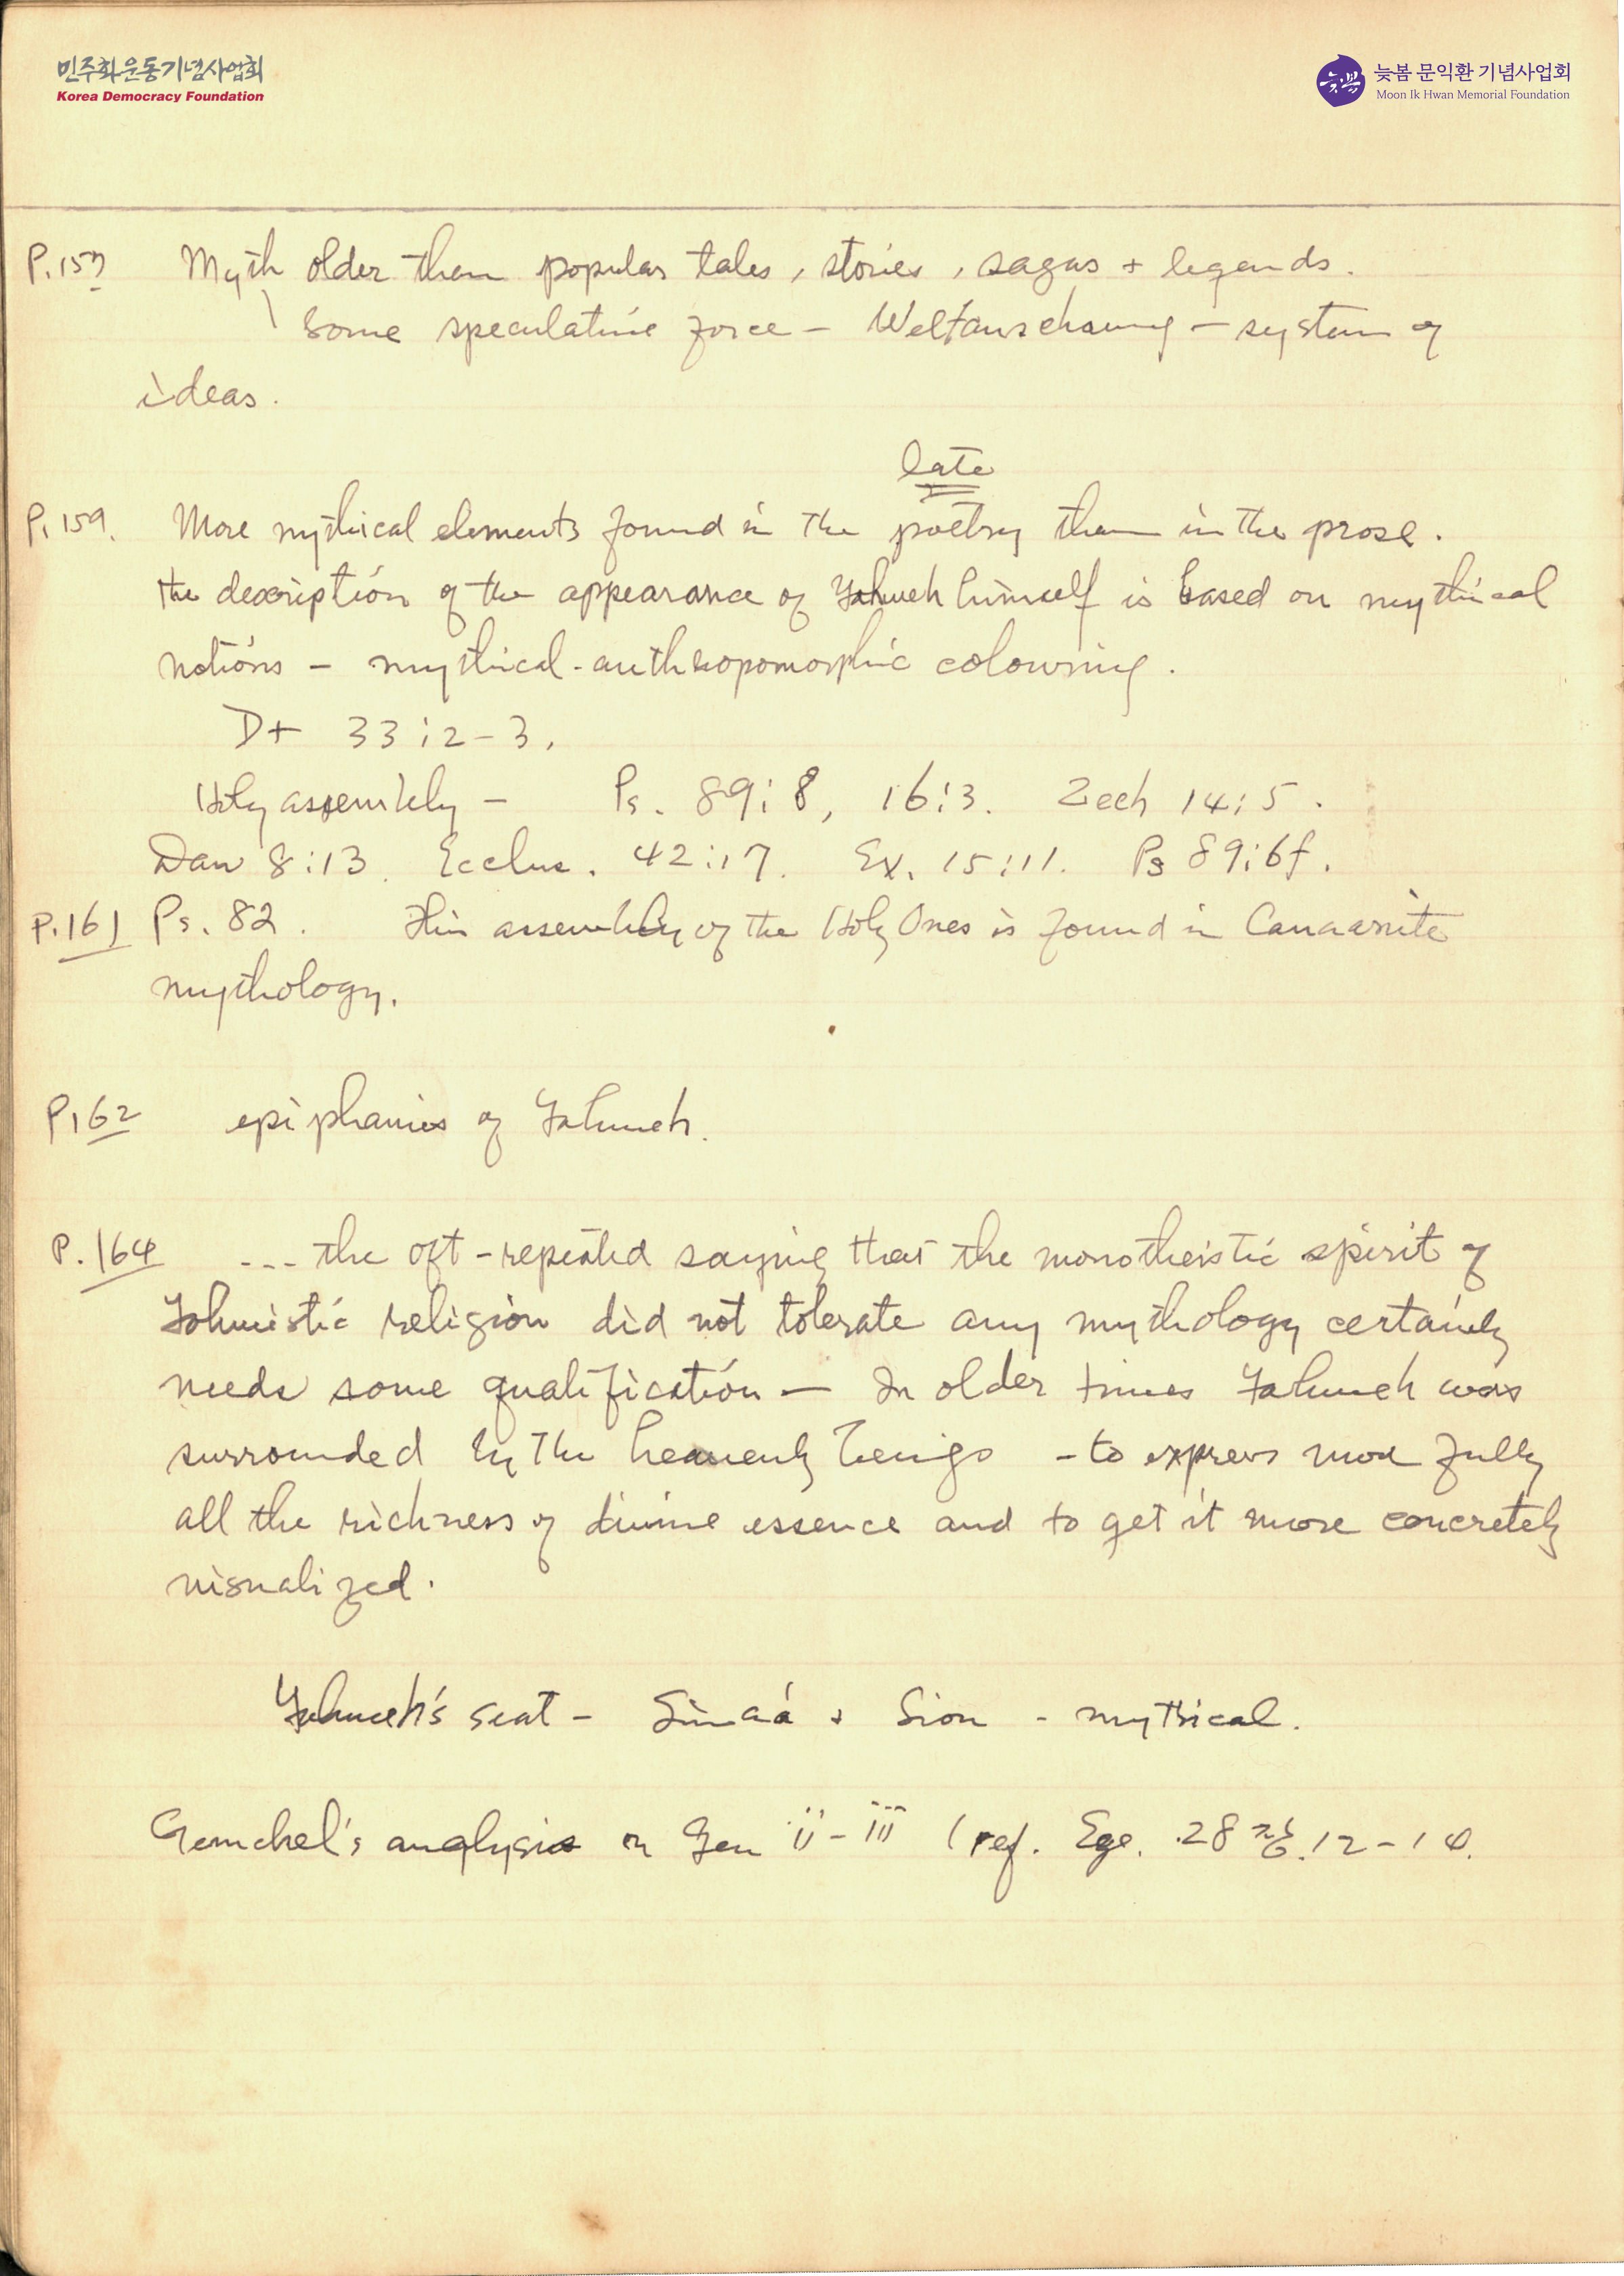 민주화운동기념사업회
Korea Democracy Foundation
늦봄 문익환 기념사업회
Moon Ik Hwan Memorial Foundation
P.157 Myth older than popular tales, stories, sagas + legends.
Some speculative force – Weltanschaung – system of
ideas.
late
P. 159. More mythical elements found in the poetry than in the prose.
the description of the appearance of Yahweh himself is based on mythical
notions – mythical-anthropomorphic colouring.
Dt 33:2–3.
Holy assembly – Ps. 89:8, 16:3. Zech 14:5.
Dan 8:13. Ecclus. 42:17. Ex. 15:11. Ps 89:6f.
P.161 Ps. 82. This assembly of the Holy Ones is found in Canaanite
mythology.
P162 epiphanies of Yahweh.
P.164 --- the oft-repeated saying that the monotheistic spirit of
Yahwistic religion did not tolerate any mythology certainly
needs some qualification – In older times Yahweh was
surrounded by the heavenly beings – to express more fully
all the richness of divine essence and to get it more concretely
visualized.
Yahweh's seat – Sinai + Sion – mythical.
Gunckel's analysis on Gen ii – iii (ref. Eze. 28장.12–14.